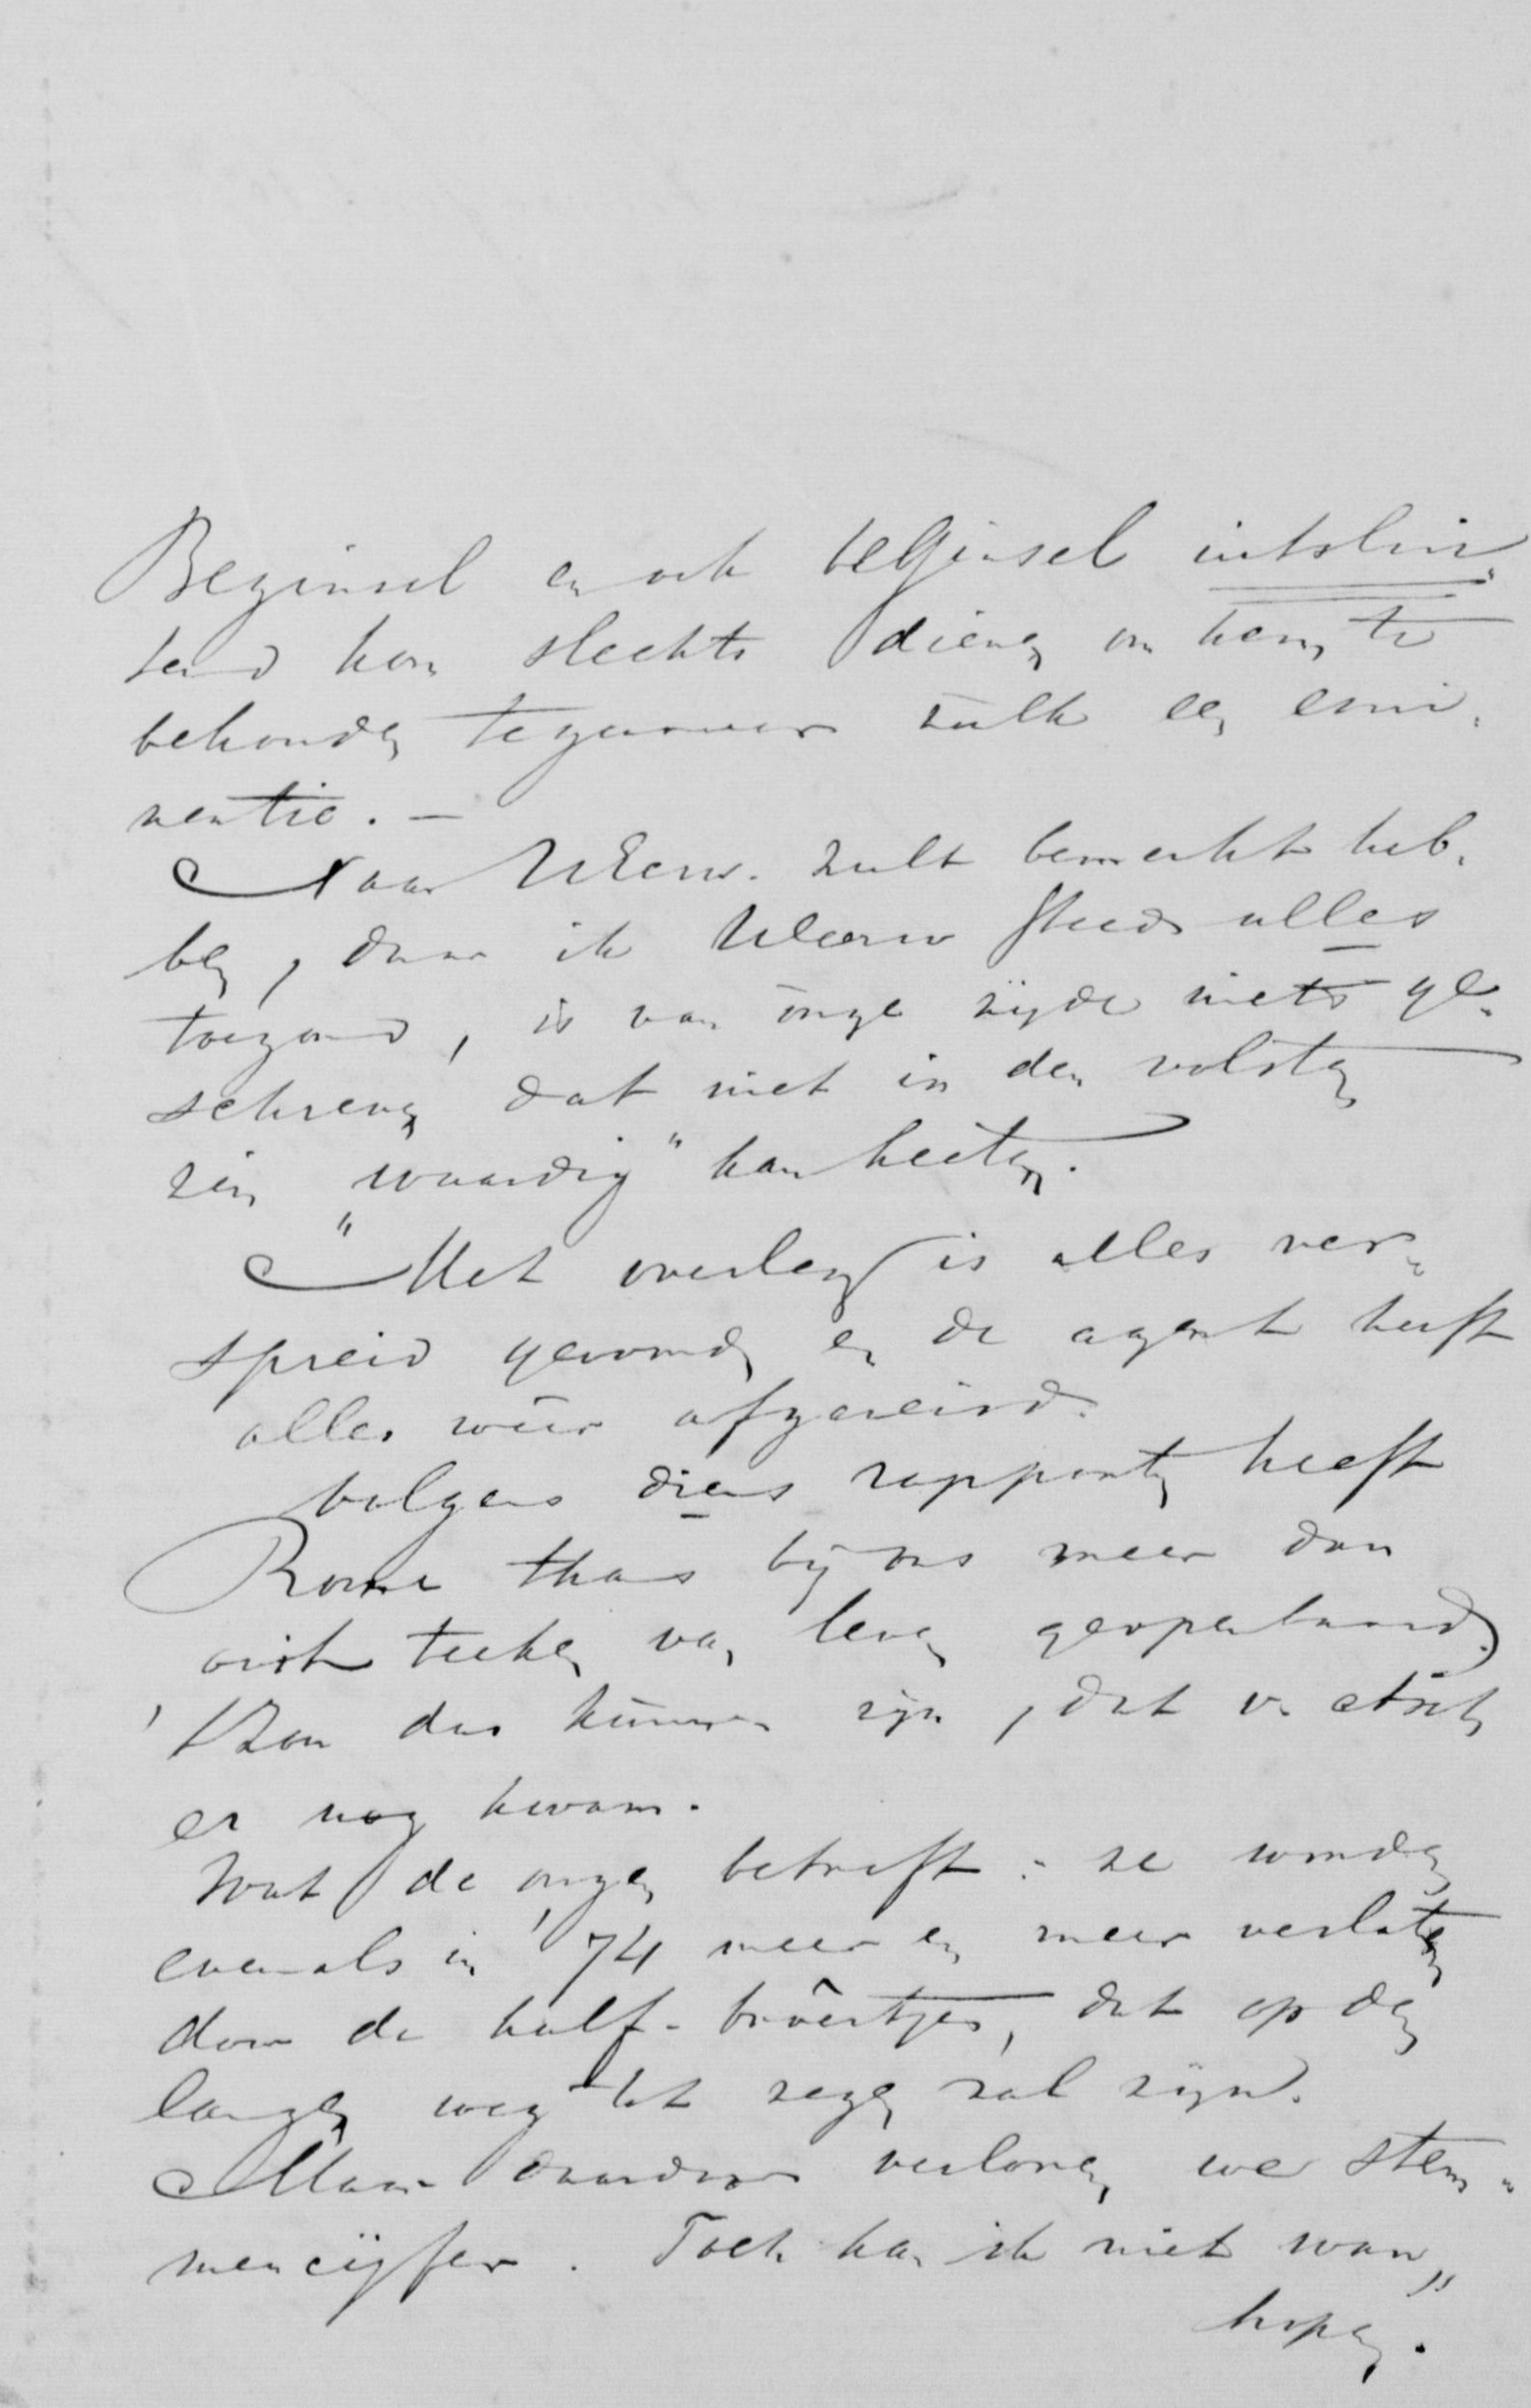 Beginsel en ook beginsel uitslui„
tend kon slechts dienen om hem te
behouden tegenover zulk een emi„
nentie. —
Naar UEerw. zult bemerkt heb„
ben, daar ik UEerw steeds alles
toezond, is van onze zijde niets ge„
schreven dat niet in den volsten
zin „waardig" kan heeten.
Met overleg is alles ver„
spreid geworden en de agent heeft
alles weer afgereisd.
Volgens diens rapporten heeft
Rome thans bij ons meer dan
ooit teeken van leven geopenbaard.
't Zou dus kunnen zijn, dat v.
er nog kwam.
Wat de onzen betreft: ze worden
evenals in '74 meer en meer verlaten
door de half-broertjes, dat op den
langen weg tot zegen zal zijn.
Maar daardoor verloren we stem„
mencijfer. Toch kan ik niet wan„
hopen.